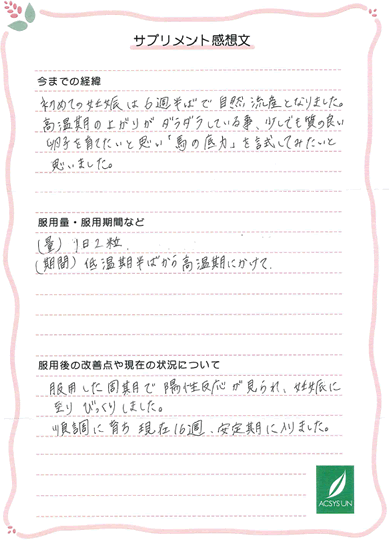 サプリメント感想文
今までの経緯
初めての妊娠は6週そばで自然流産となりました。
高温期の上がりがダラダラしている事、少しでも質の良い
卵子を育てたいと思い「馬の底力」を試してみたいと
思いました。
服用量・服用期間など
(量) 1日2粒.
(期間) 低温期そばから高温期にかけて.
服用後の改善点や現在の状況について
服用した周期で陽性反応が見られ、妊娠に
至りびっくりしました。
順調に育ち現在16週、安定期に入りました。
ACSYSUN